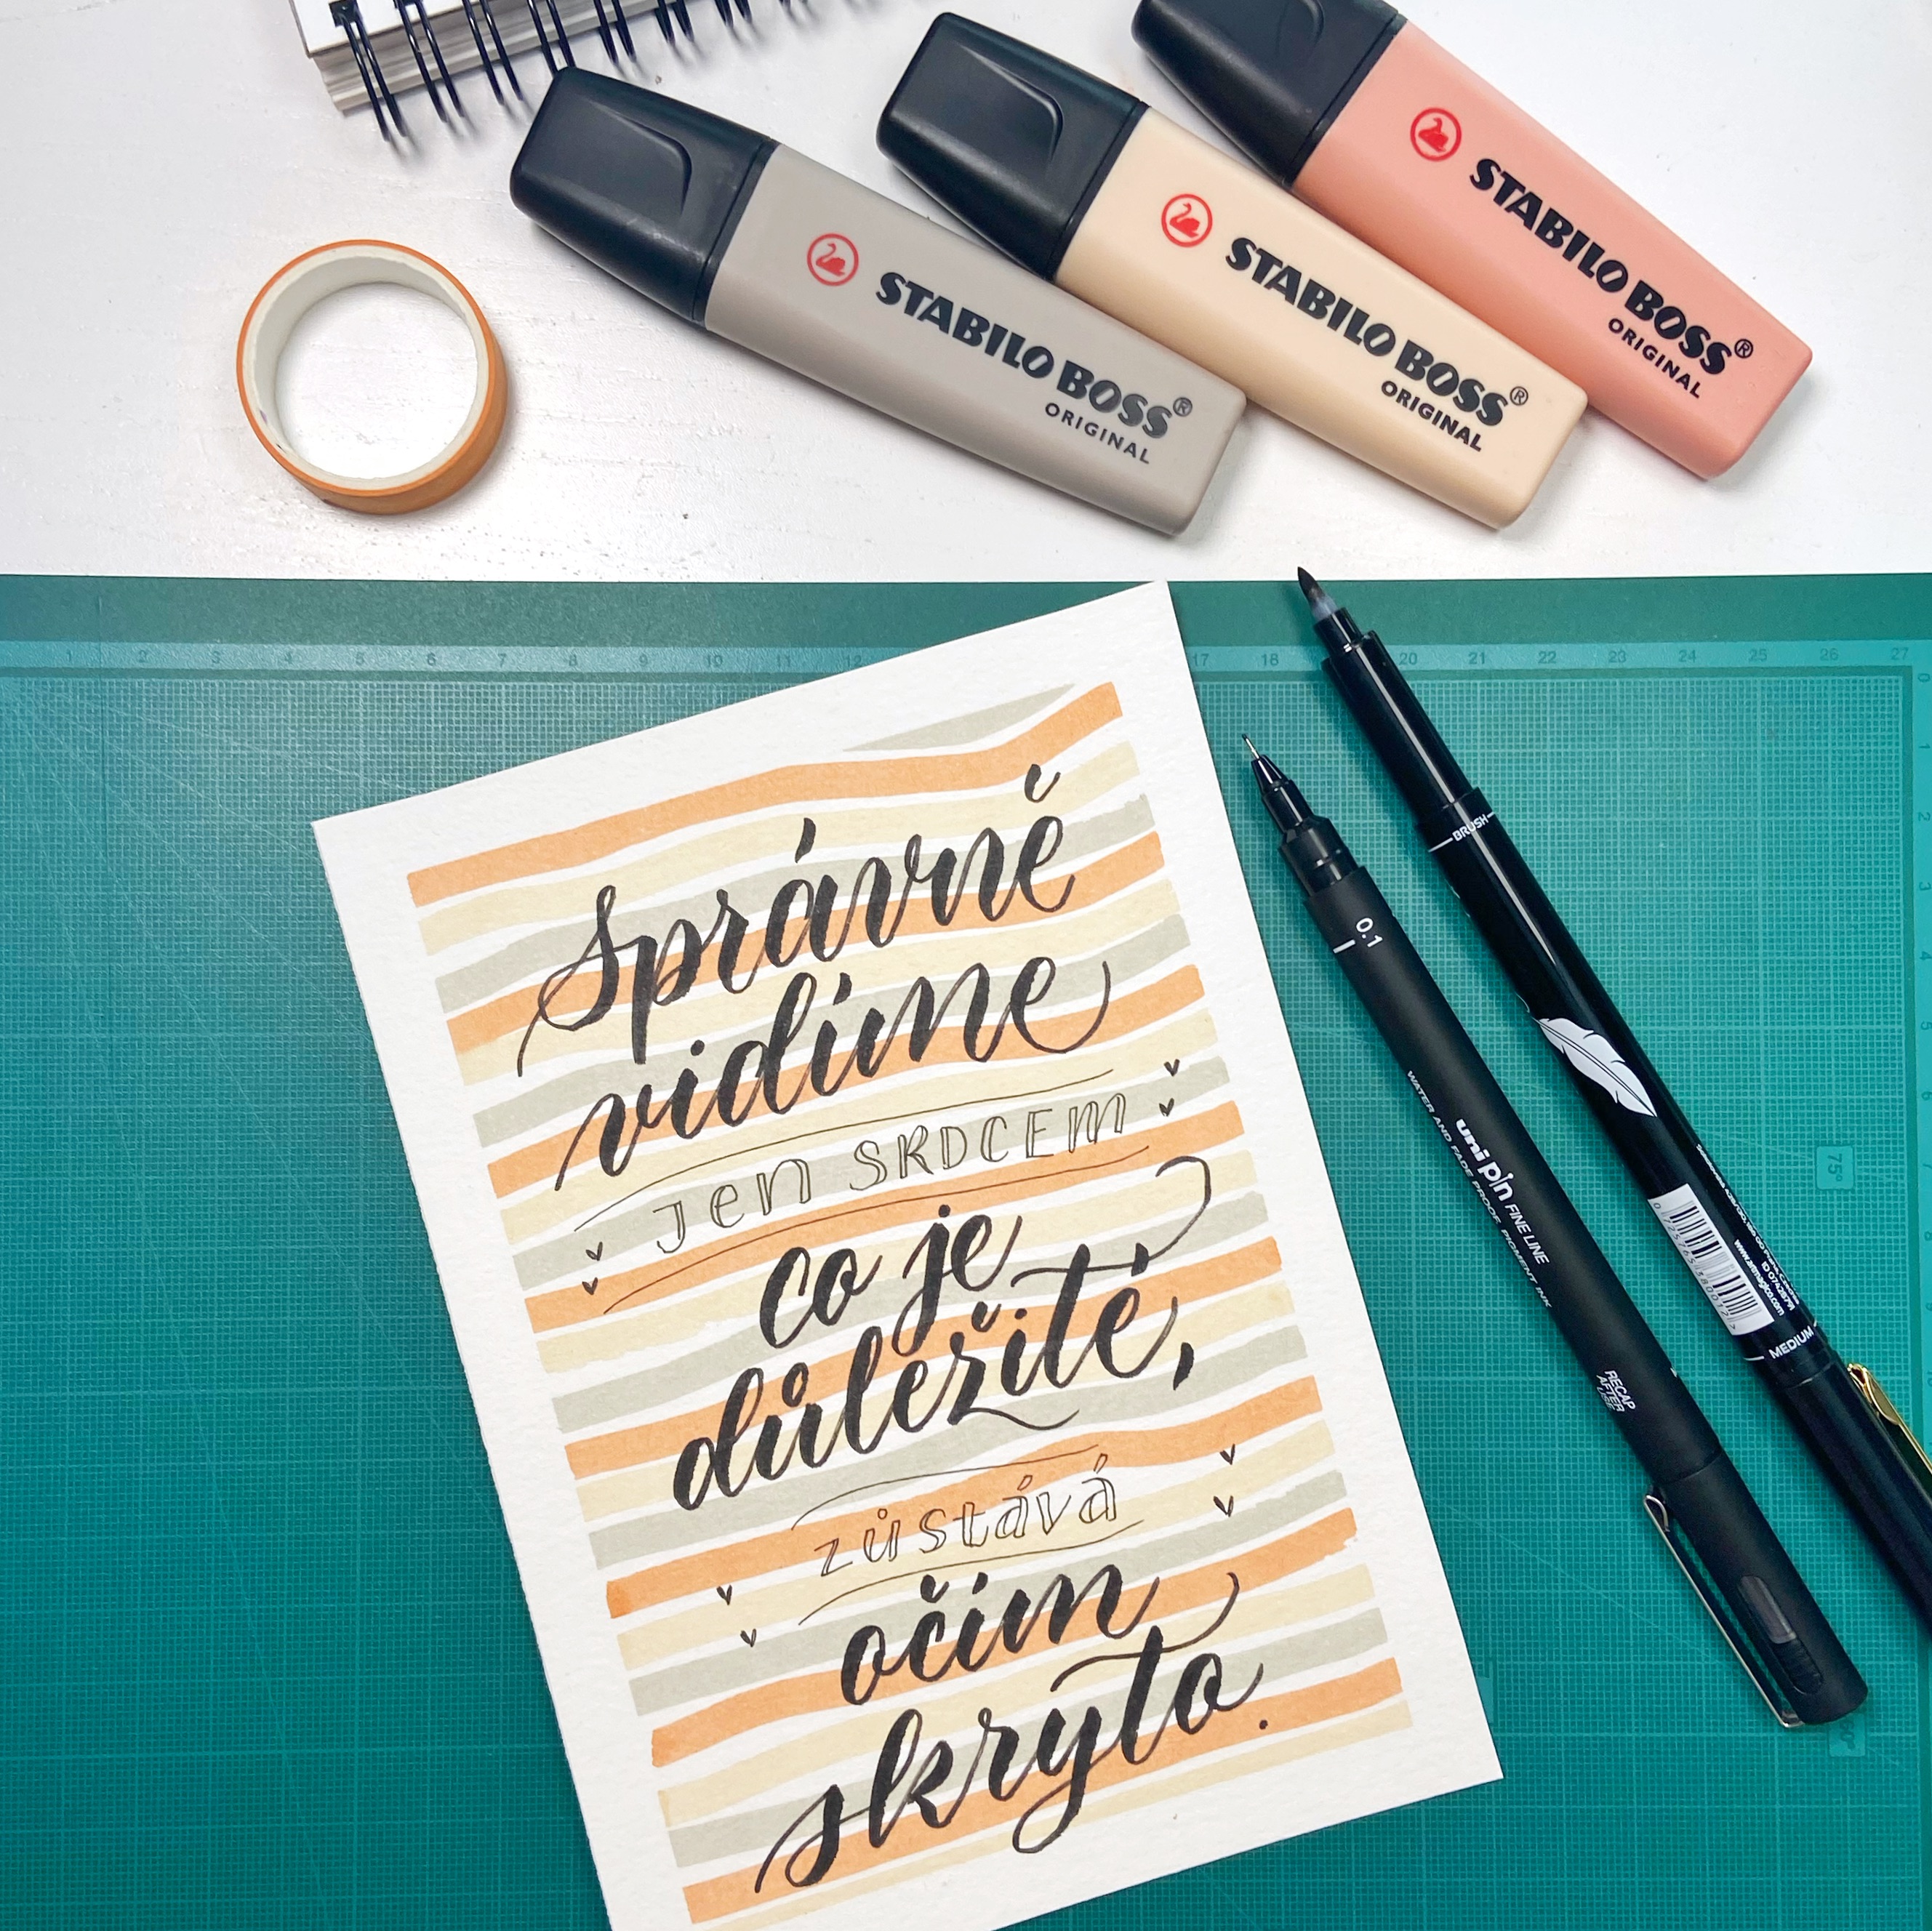 STABILO BOSS®
ORIGINAL
STABILO BOSS®
ORIGINAL
STABILO BOSS®
ORIGINAL
1 2 3 4 5 6 7 8 9 10 11 12 17 18 20 21 22 23 24 25 26 27
Správně
vidíme
jen SRDCEM
co je
důležité,
zůstává
očím
skryto.
BRUSH
MEDIUM
0.1
uni pin FINE LINE
WATER AND FADE PROOF PIGMENT INK
RECAP
AFTER
USE
75°